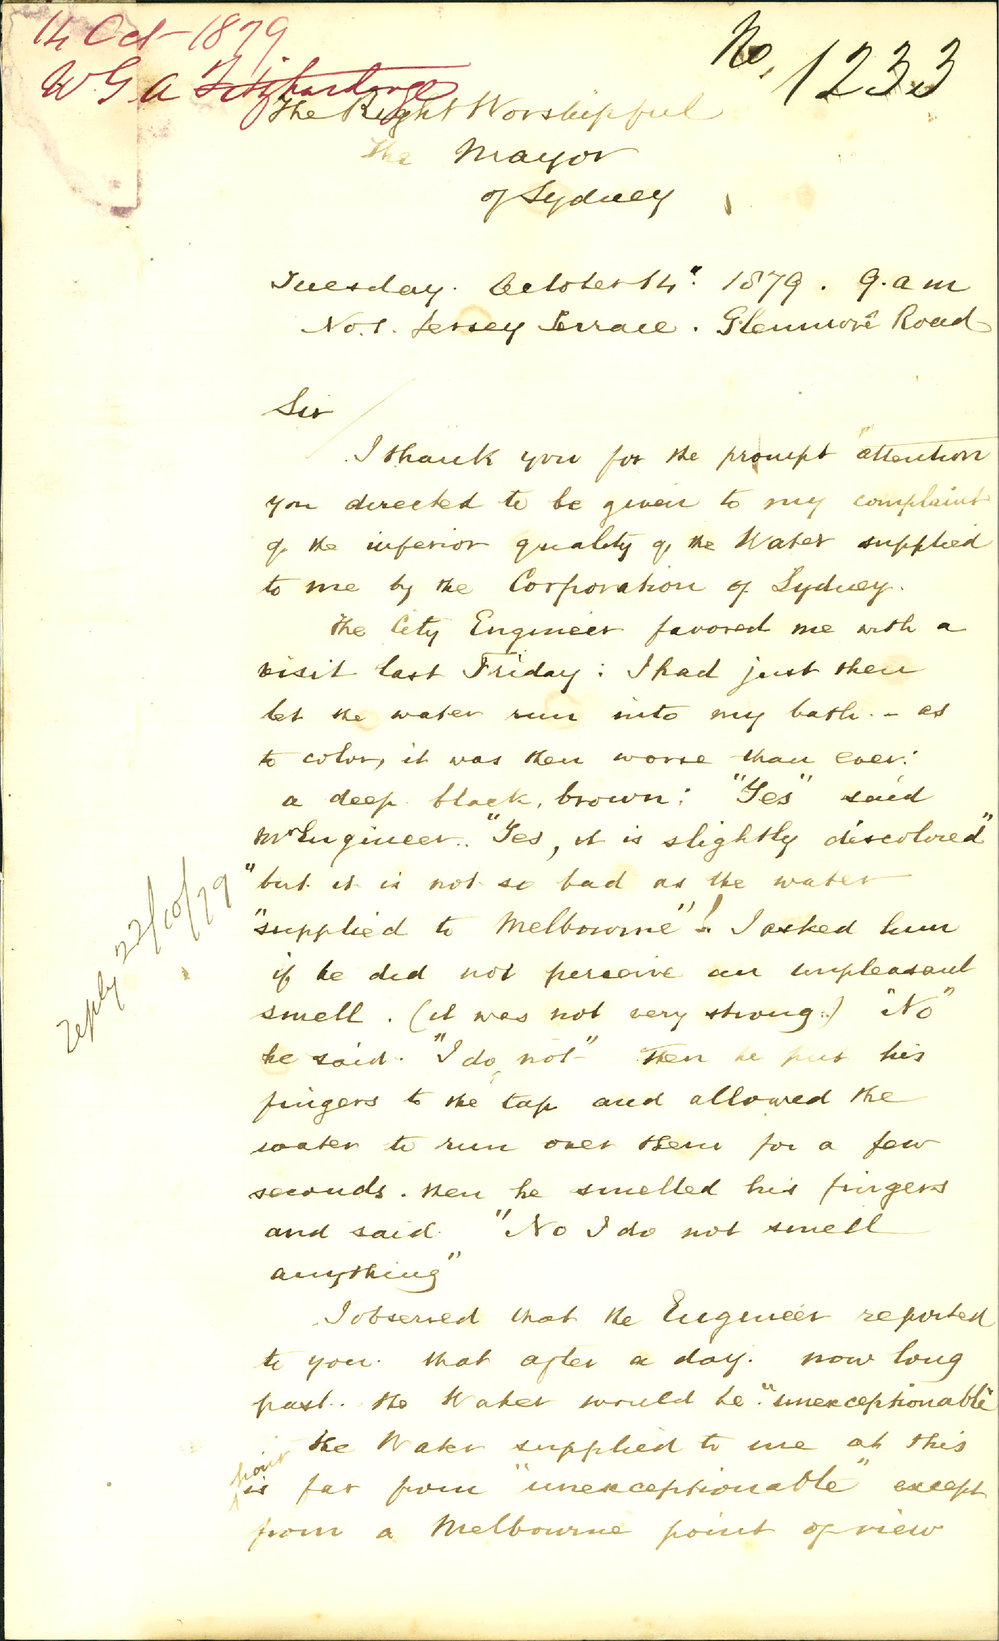 14 Oct 1879
No. 1233
W G A Fitzhardinge
The Right Worshipful
The Mayor
of Sydney
Tuesday. October 14". 1879. 9. a m
No. 1. Jersey Terrace. Glenmore Road
Sir
I thank you for the prompt "attention
you directed to be given to my complaint
of the inferior quality of the Water supplied
to me by the Corporation of Sydney.
The City Engineer favored me with a
visit last Friday: I had just then
let the water run into my bath. - as
to color, it was then worse than ever:
a deep black, brown: "Yes" said
Mr Engineer. "Yes, it is slightly discolored"
"but it is not so bad as the water
"supplied to Melbourne"! I asked him
if he did not perceive an unpleasant
smell. (it was not very strong.) "No"
he said. "I do not" Then he put his
fingers to the tap and allowed the
water to run over them for a few
seconds. then he smelled his fingers
and said "No I do not smell
anything"
I observed that the Engineer reported
to you. that after a day. now long
past.. the Water would be "unexceptionable"
The Water supplied to me at this
hour
is far from "unexceptionable" except
from a Melbourne point of view
reply 22/10/79